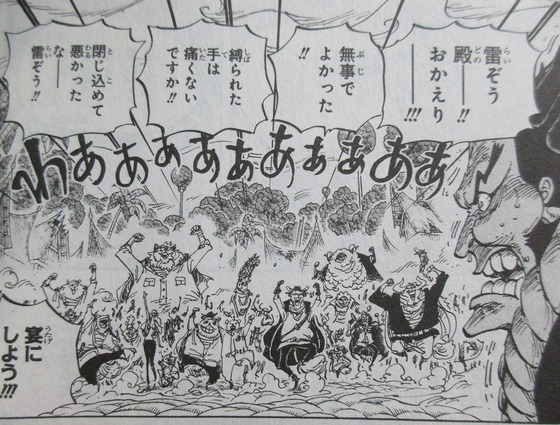 雷ぞう
殿──!!
おかえり
──!!!
無事で
よかった
!!
縛られた
手は
痛くない
ですか!!
閉じ込めて
悪かった
な──
雷ぞう!!
わあああああああああ
宴に
しよう!!!